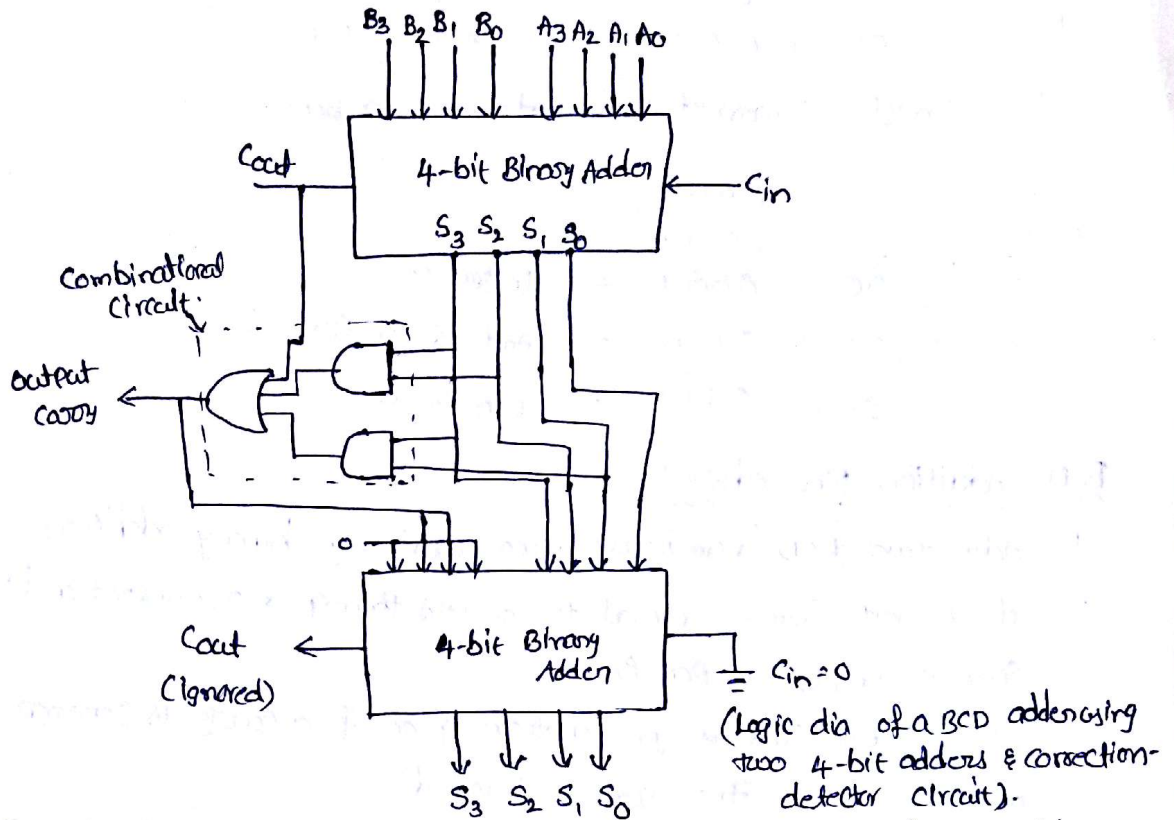 B3 B2 B1 B0 A3 A2 A1 A0
4-bit Binary Adder
Cout
Cin
S3 S2 S1 S0
Combinational
Circuit.
output
carry
0
4-bit Binary
Adder
Cout
(Ignored)
Cin = 0
S3 S2 S1 S0
(Logic dia of a BCD adder using
two 4-bit adders & correction-
detector circuit).